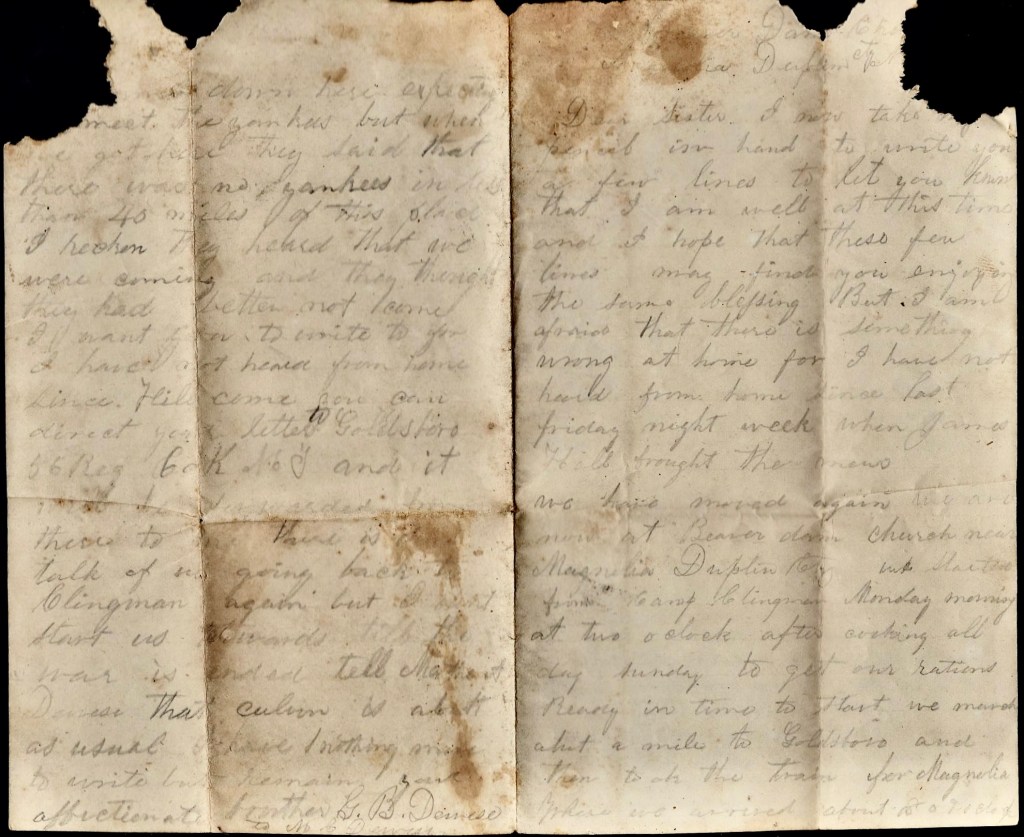 Beaver Dam Ch
Magnolia Duplin Cty
Dear Sister. I now take my
pencil inn hand to write you
a few lines to let you know
that I am well at this time
and I hope that these few
lines may find you enjoying
the same blessing But I am
afraid that there is something
wrong at home for I have not
heard from home since last
friday night week when James
Hill brought the news
we have moved again we are
now at Beaver dam church near
Magnolia Duplin Cty we started
from Camp Clingman Monday morning
at two oclock after cooking all
day sunday to get our rations
Ready in time to start we march
abut a mile to Goldsboro and
then took the train for Magnolia
where we arrived about o clock
down here expecting
meet. the yankes but when
we got here they said that
there was no yankees in less
than 40 miles of this place
I reckon they heard that we
were coming and they thought
they had better not come
I want you to write to you
I have not heard from home
since. Hill come you can
direct your letter to Goldsboro
56 Reg Co K N C T and it
will be forwarded from
there to me there is
talk of us going back to
Clingman again but I
start us towards till the
war is ended tell
Deweese that culvin is abut
as usual I have nothing more
to write but remain your
affectionate brother G. B. Deweese
to